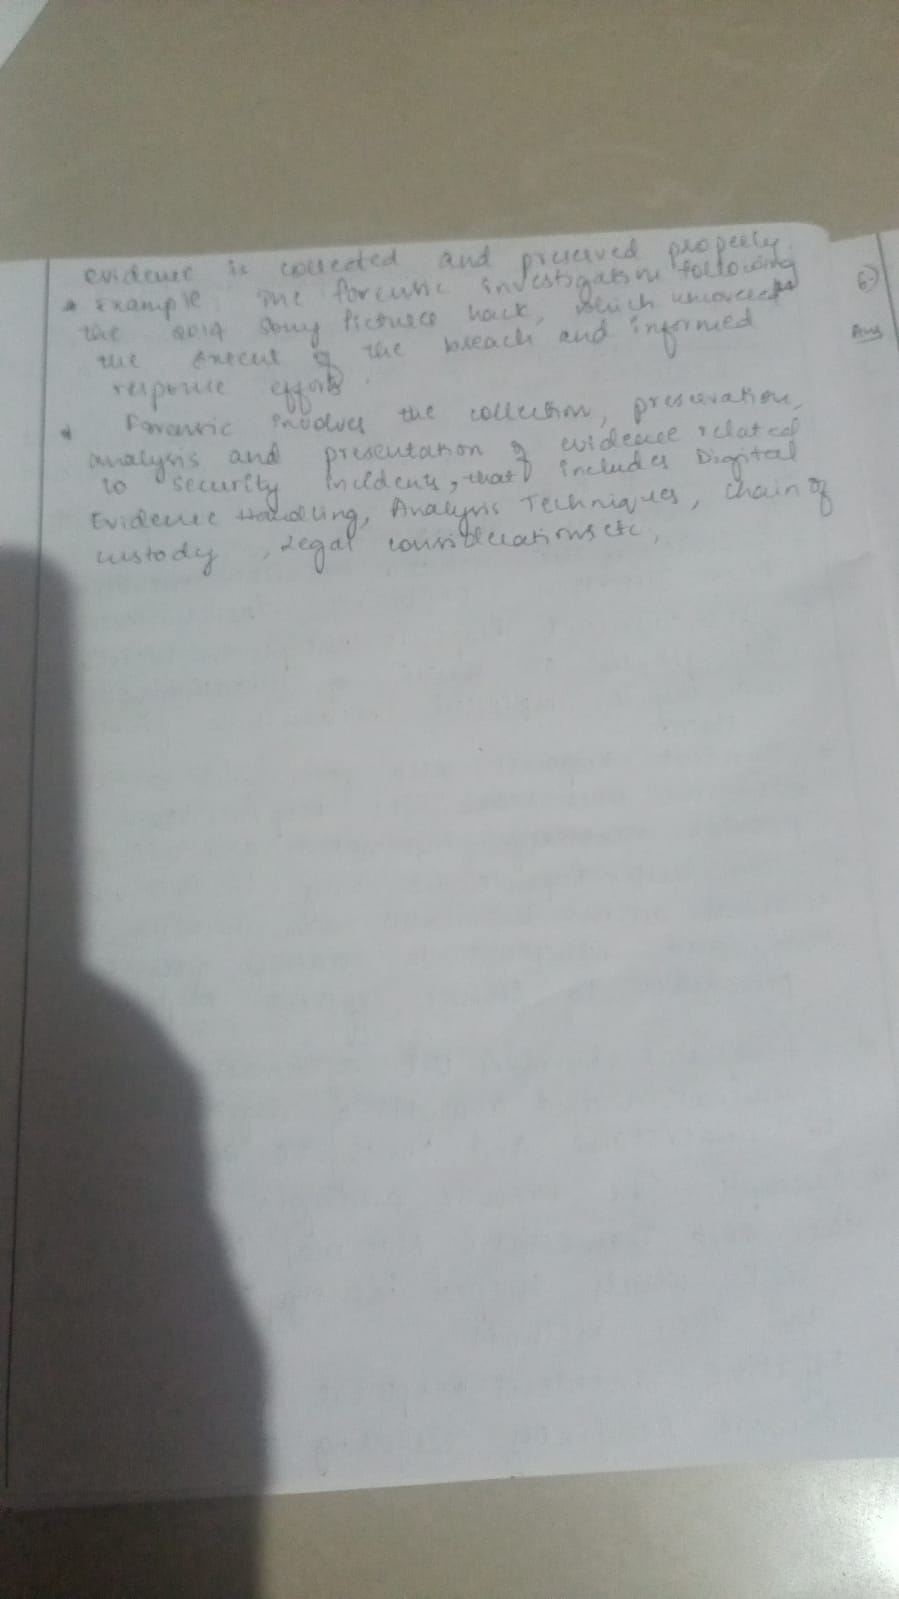 evidence is collected and preserved properly.
* Example: The forensic investigation following
the 2014 Sony Pictures hack, which uncovered
the extent of the breach and informed
response efforts.
* Forensic involves the collection, preservation,
analysis and presentation of evidence related
to security incidents, that includes Digital
Evidence Handling, Analysis Techniques, Chain of
custody, Legal considerations etc,
6)
Ans